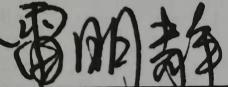 雷明静